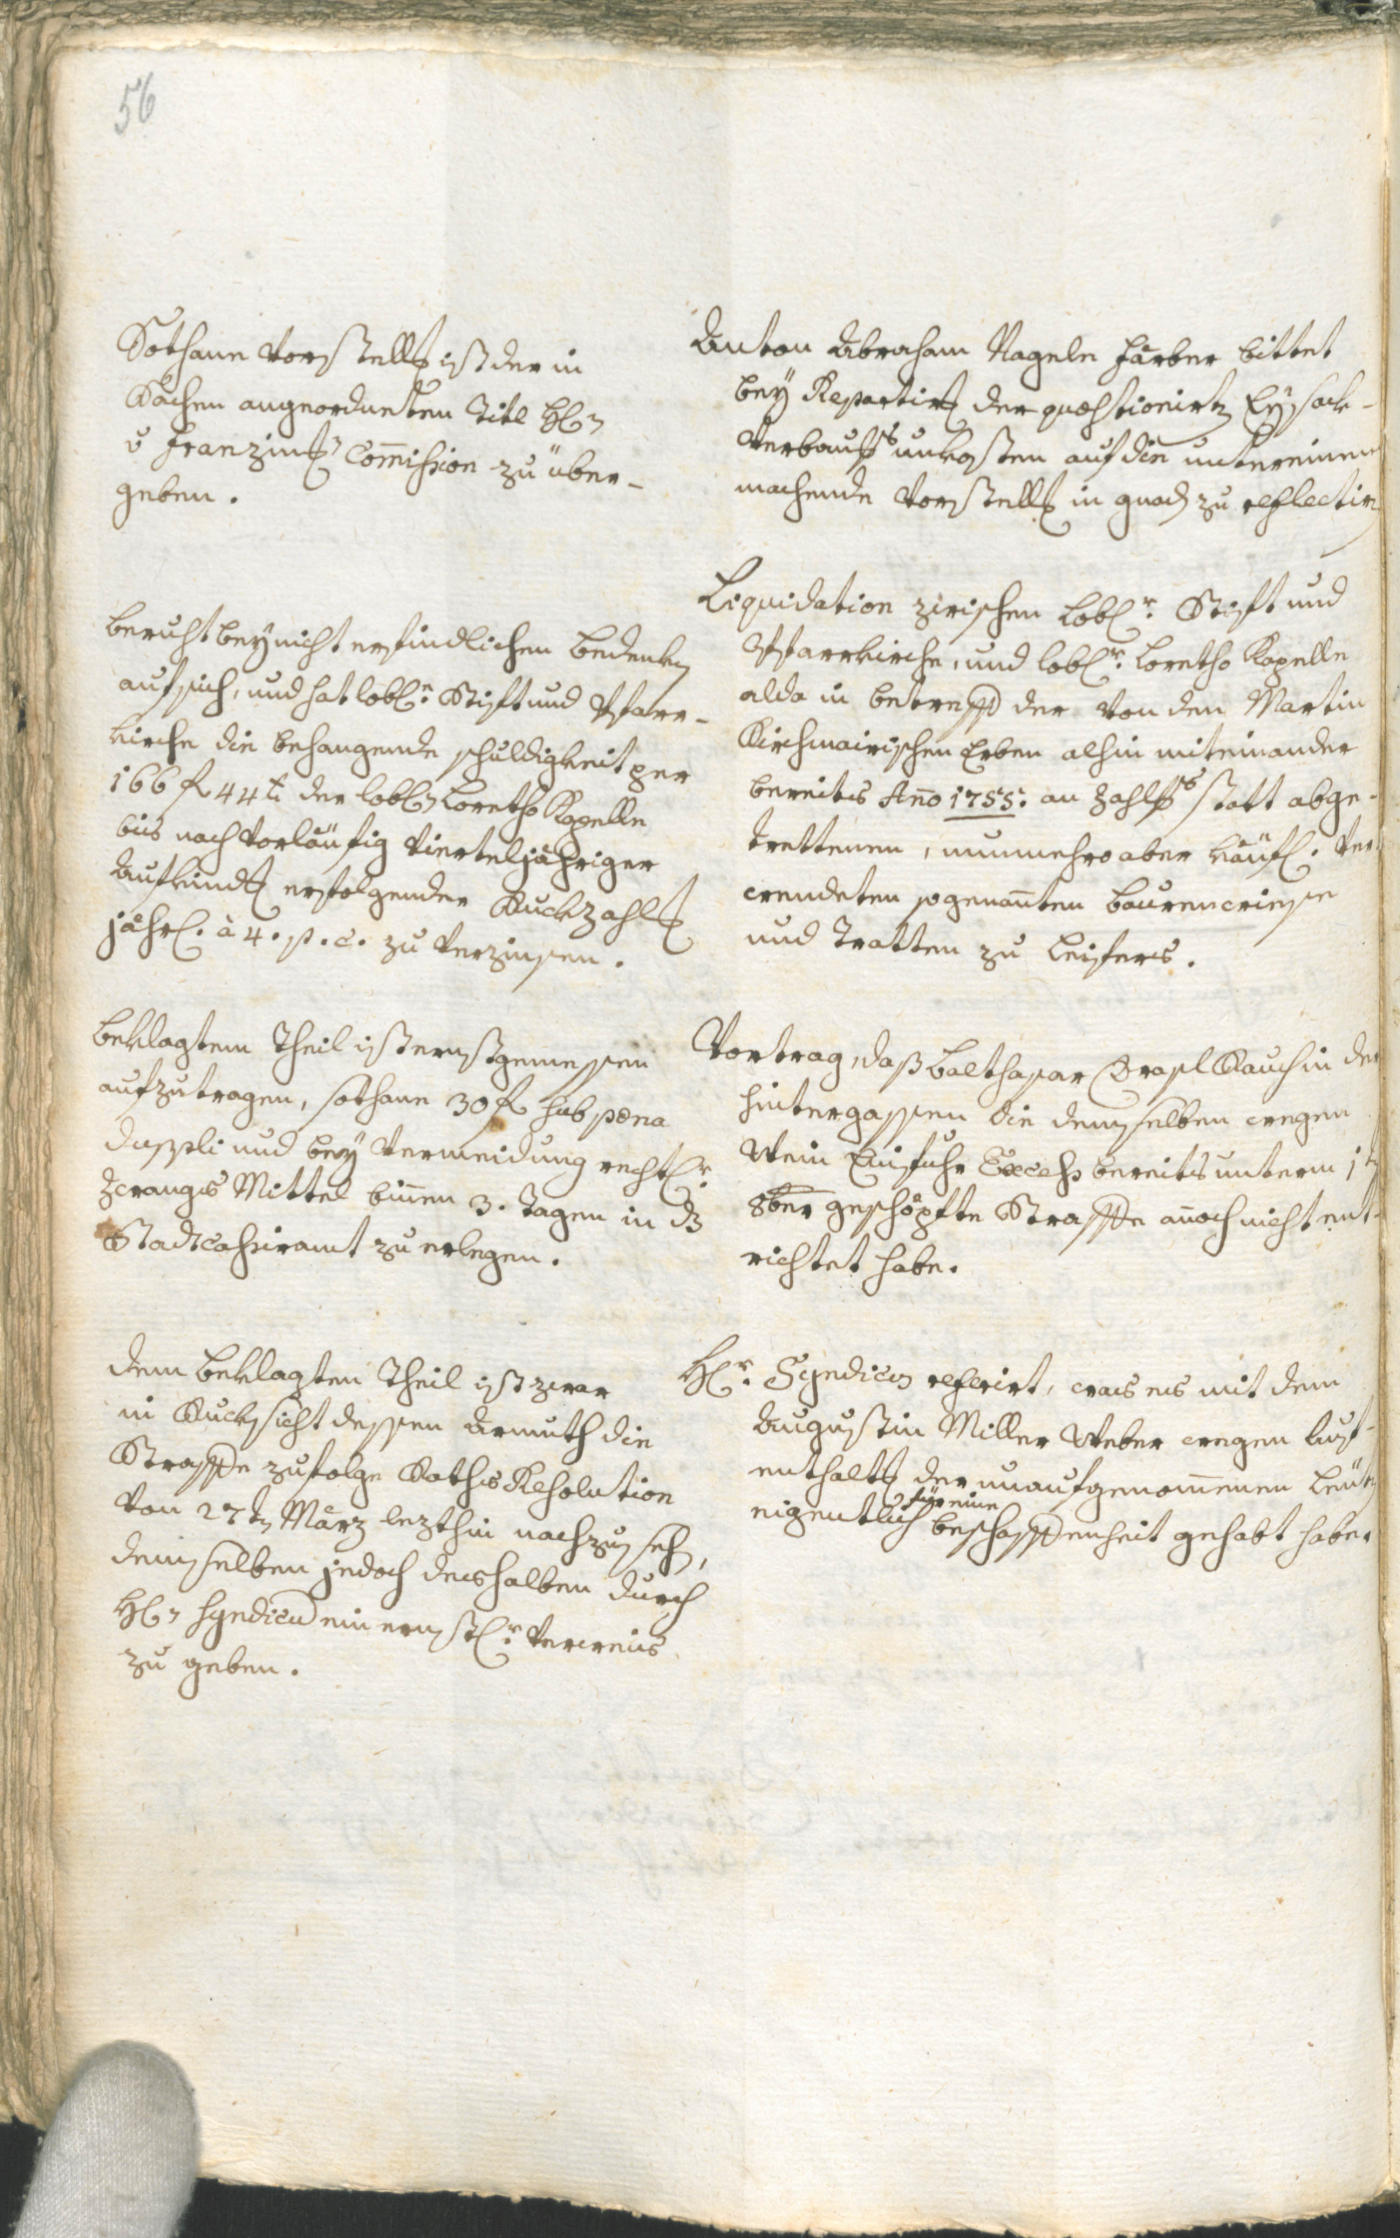 56
Sothane Vorstellg ist der in
Sachen angeordneten Titl H:
v Franzing: Com̄ission zu über-
geben.
beruht bey nicht erfindlichen Bedenken
auf sich, und hat lobl:r Stift und Pfarr-
kirche die behangende schuldigkeit per
166 f 44 k: der lobl: Loretho Kapelle
bis nach vorläufig vierteljähriger
Aufkündg erfolgender Ruckzahlg
jährl: à 4. p. c. zu verzinsen.
beklagtem Theil ist ernstgemessen
aufzutragen, sothane 30 f sub pœna
dupli und bey Vermeidung rechtl:r
Zwangs Mittel binnen 3. Tagen in dz
Stadtcassieramt zu erlegen.
dem beklagten Theil ist zwar
in Rucksicht dessen Armuth die
Straffe zufolge Raths Resolution
von 27ten März lezthin nachzusehen,
demselben jedoch deshalben durch
H: Syndicum ein ernstl:r Verweis
zu geben.
Anton Abraham Nagele Färber bittet
bey Repartirg der quæstionirten Eysack-
Verbauungs unkosten auf die untereinem
machende Vorstellg in gnaden zu reflectirn
Liquidation zwischen Lobl:r Stift und
Pfarrkirche, und lobl:r Loretho Kapelle
alda in betreff der von den Martin
Kirchmairischen Erben alhin miteinander
bereits An̄o 1755: an Zahlungs statt abge-
trettenen, nunmehro aber käufl: ver-
wendeten sogenan̄ten Baurenwiese
und Tratten zu Leifers.
Vortrag, daß Balthasar Rauch in der
Hintergassen die demselben wegen
Wein Einfuhr Excess bereits unterm 1ten
8ber geschöpfte Straffe an̄och nicht ent-
richtet habe.
H:r Syndicus referirt, was es mit dem
Augustin Miller Weber wegen Auf-
enthaltg der unaufgenom̄enen Leüte
eigentlich für eine beschaffenheit gehabt habe.